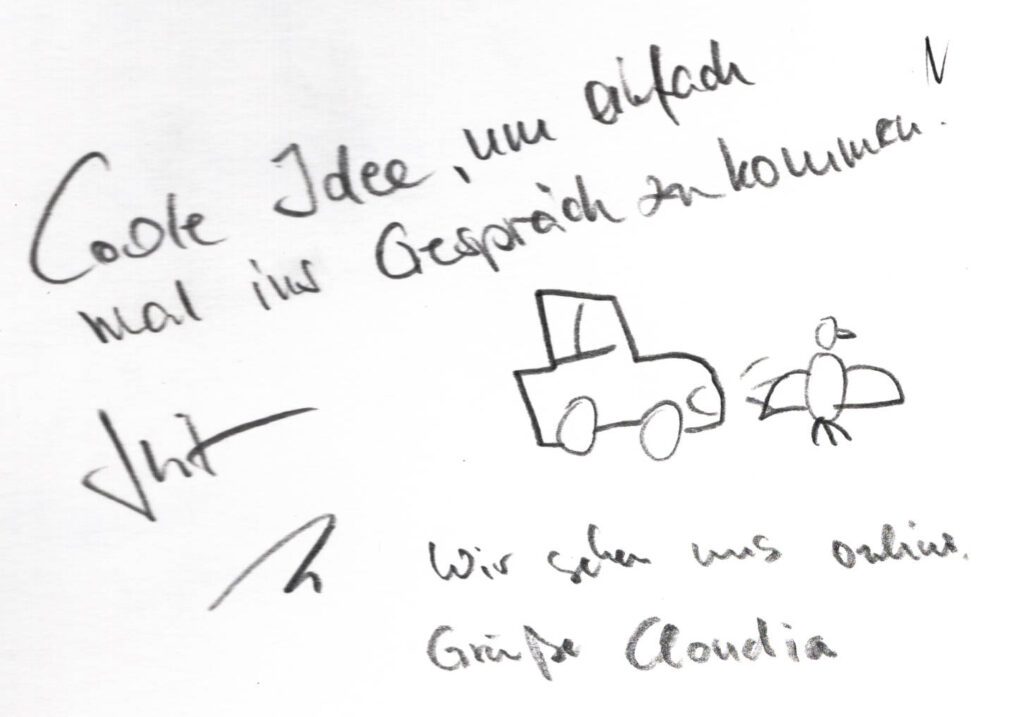 Coole Idee, um einfach
mal ins Gespräch zu kommen!
Wir sehen uns online.
Grüße Claudia